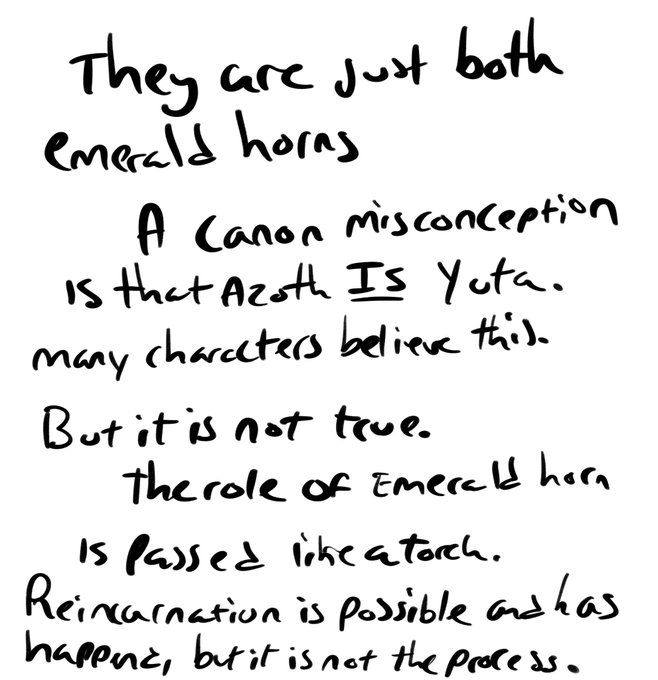 They are just both
emerald horns
A canon misconception
is that Azoth IS Yuta.
many characters believe this.
But it is not true.
The role of Emerald horn
is passed like a torch.
Reincarnation is possible and has
happend, but it is not the process.